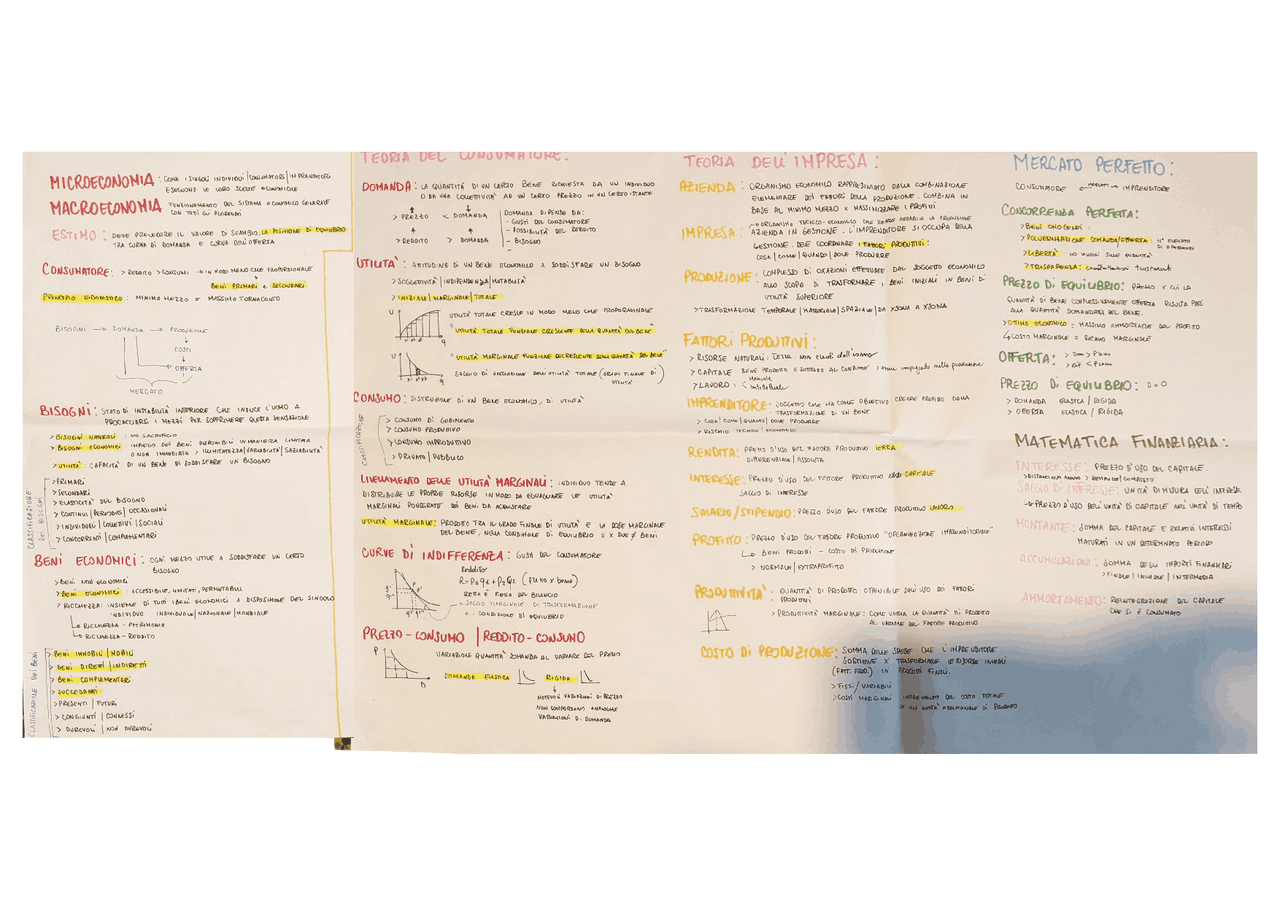 MICROECONOMIA: COME I SINGOLI INDIVIDUI/CONSUMATORI/IMPRENDITORI
ESEGUONO LE LORO SCELTE ECONOMICHE
MACROECONOMIA FUNZIONAMENTO DEL SISTEMA ECONOMICO GENERALE
CON TUTTI GLI
ESTIMO: DEVE PREVEDERE IL VALORE DI SCAMBIO, LA POSIZIONE DI EQUILIBRIO
TRA CURVA DI DOMANDA E CURVA DELL'OFFERTA
CONSUMATORE: > REDDITO > CONSUMI IN MODO MENO CHE PROPORZIONALE
BENI PRIMARI E SECONDARI
PRINCIPIO EDONISTICO: MINIMO MEZZO MASSIMO TORNACONTO
BISOGNI → DOMANDA → PRODUZIONE
COSTI
OFFERTA
MERCATO
BISOGNI: STATO DI INSTABILITÀ INTERIORE CHE INDUCE L'UOMO A
PROCACCIARSI I MEZZI PER SOPPRIMERE QUESTA SENSAZIONE
> BISOGNI NATURALI: NO SACRIFICIO
> BISOGNI ECONOMICI IMPIEGO DEI BENI DISPONIBILI IN MANIERA LIMITATA
O NON IMMEDIATA > ILLIMITATEZZA/VARIABILITÀ/SAZIABILITÀ
> UTILITÀ: CAPACITÀ DI UN BENE DI SODDISFARE UN BISOGNO
CLASSIFICAZIONE DEI BISOGNI
> PRIMARI
> SECONDARI
> ELASTICITÀ DEL BISOGNO
> CONTINUI/PERIODICI/OCCASIONALI
> INDIVIDUALI/COLLETTIVI/SOCIALI
> CONCORRENTI/COMPLEMENTARI
BENI ECONOMICI: OGNI MEZZO UTILE A SODDISFARE UN CERTO
BISOGNO
> BENI NON ECONOMICI
> BENI ECONOMICI: ACCESSIBILI, LIMITATI, PERMUTABILI
> RICCHEZZA: INSIEME DI TUTTI I BENI ECONOMICI A DISPOSIZIONE DEL SINGOLO
INDIVIDUO INDIVIDUALE/NAZIONALE/MONDIALE
RICCHEZZA - PATRIMONIO
RICCHEZZA - REDDITO
CLASSIFICAZIONE DEI BENI
> BENI IMMOBILI/MOBILI
> BENI DIRETTI/INDIRETTI
> BENI COMPLEMENTARI
> SUCCEDANEI
> PRESENTI/FUTURI
> CONGIUNTI/CONNESSI
> DUREVOLI/NON DUREVOLI
TEORIA DEL CONSUMATORE:
DOMANDA: LA QUANTITÀ DI UN CERTO BENE RICHIESTA DA UN INDIVIDUO
O DA UNA COLLETTIVITÀ AD UN CERTO PREZZO IN UN CERTO ISTANTE
> PREZZO < DOMANDA
> REDDITO > DOMANDA
DOMANDA DIPENDE DA:
- GUSTI DEL CONSUMATORE
- POSSIBILITÀ DEL REDDITO
- BISOGNO
UTILITÀ: ATTITUDINE DI UN BENE ECONOMICO A SODDISFARE UN BISOGNO
> SOGGETTIVITÀ/INDIPENDENZA/MUTABILITÀ
> INIZIALE/MARGINALE/TOTALE
U
q
UTILITÀ TOTALE CRESCE IN MODO MENO CHE PROPORZIONALE
"UTILITÀ TOTALE FUNZIONE CRESCENTE DELLA QUANTITÀ DEL BENE"
U
q
"UTILITÀ MARGINALE FUNZIONE DECRESCENTE DELLA QUANTITÀ DEL BENE"
SAGGIO DI VARIAZIONE DELL'UTILITÀ TOTALE (GRADO FINALE DI
UTILITÀ)
CONSUMO: DISTRUZIONE DI UN BENE ECONOMICO, DI UTILITÀ
CLASSIFICAZIONE
> CONSUMO DI GODIMENTO
> CONSUMO PRODUTTIVO
> CONSUMO IMPRODUTTIVO
> PRIVATO/PUBBLICO
LIVELLAMENTO DELLE UTILITÀ MARGINALI: INDIVIDUO TENDE A
DISTRIBUIRE LE PROPRIE RISORSE IN MODO DA EGUAGLIARE LE UTILITÀ
MARGINALI PONDERATE DEI BENI DA ACQUISTARE
UTILITÀ MARGINALE: PRODOTTO TRA IL GRADO FINALE DI UTILITÀ E LA DOSE MARGINALE
DEL BENE, NELLA CONDIZIONE DI EQUILIBRIO È X DUE ≠ BENI
CURVE DI INDIFFERENZA: GUSTI DEL CONSUMATORE
Reddito
RETTA DEL BILANCIO
SAGGIO MARGINALE DI TRASFORMAZIONE
CONDIZIONE DI EQUILIBRIO
PREZZO-CONSUMO | REDDITO-CONSUMO
P
D
VARIAZIONE QUANTITÀ DOMANDA AL VARIARE DEL PREZZO
DOMANDA ELASTICA RIGIDA
NOTEVOLI VARIAZIONI DI PREZZO
NON COMPORTANO ANALOGHE
VARIAZIONI DI DOMANDA
TEORIA DELL'IMPRESA:
AZIENDA: ORGANISMO ECONOMICO RAPPRESENTATO DALLA COMBINAZIONE
ELEMENTARE DEI FATTORI DELLA PRODUZIONE. COMBINA IN
BASE AL MINIMO MEZZO X MASSIMIZZARE I PROFITTI
ORGANISMO TECNICO-ECONOMICO CHE RENDE LA PRODUZIONE
IMPRESA: AZIENDA IN GESTIONE. L'IMPRENDITORE SI OCCUPA DELLA
GESTIONE. DEVE COORDINARE I FATTORI PRODUTTIVI:
COSA/COME/QUANDO/DOVE PRODURRE
PRODUZIONE: COMPLESSO DI OPERAZIONI EFFETTUATE DAL SOGGETTO ECONOMICO
ALLO SCOPO DI TRASFORMARE I BENI INIZIALI IN BENI DI
UTILITÀ SUPERIORE
> TRASFORMAZIONE TEMPORALE/MATERIALE/SPAZIALE/DA XSONA A XSONA
FATTORI PRODUTTIVI:
> RISORSE NATURALI: Terra, non creati dall'uomo
> CAPITALE BENE PRODOTTO E SOTTRATTO AL CONSUMO impiegato nella produzione
> LAVORO: Manuale
Intellettuale
IMPRENDITORE: SOGGETTO CHE HA COME OBIETTIVO CREARE PROFITTO DALLA
TRASFORMAZIONE DI UN BENE
> COSA/COME/QUANTO/DOVE PRODURRE
> RISCHIO TECNICO/ECONOMICO
RENDITA: PREZZO D'USO DEL FATTORE PRODUTTIVO TERRA
DIFFERENZIALE/ASSOLUTA
INTERESSE: PREZZO D'USO DEL FATTORE PRODUTTIVO CAPITALE
SAGGIO DI INTERESSE
SALARIO/STIPENDIO: PREZZO D'USO DEL FATTORE PRODUTTIVO LAVORO
PROFITTO: PREZZO D'USO DEL FATTORE PRODUTTIVO "ORGANIZZAZIONE IMPRENDITORIALE"
BENI PRODOTTI - COSTO DI PRODUZIONE
> NORMALE/EXTRAPROFITTO
PRODUTTIVITÀ: QUANTITÀ DI PRODOTTO OTTENIBILE DALL'USO DEI FATTORI
PRODUTTIVI
> PRODUTTIVITÀ MARGINALE: COME VARIA LA QUANTITÀ DI PRODOTTO
AL VARIARE DEL FATTORE PRODUTTIVO
COSTO DI PRODUZIONE: SOMMA DELLE SPESE CHE L'IMPRENDITORE
SOSTIENE X TRASFORMARE LE RISORSE INIZIALI
(FATT. PROD.) IN PRODOTTI FINALI.
> FISSI/VARIABILI
> COSTI MARGINALI INCREMENTO DEL COSTO TOTALE
X UN'UNITÀ ADDIZIONALE DI PRODOTTO
MERCATO PERFETTO:
CONSUMATORE ← MERCATO → IMPRENDITORE
CONCORRENZA PERFETTA:
> BENI OMOGENEI
> POLVERIZZAZIONE DOMANDA/OFFERTA: N° ELEVATO
DI OPERATORI
> LIBERTÀ:
> TRASPARENZA: CONTRATTAZIONI TRASPARENTI
PREZZO DI EQUILIBRIO: PREZZO X CUI LA
QUANTITÀ DI BENE COMPLESSIVAMENTE OFFERTA RISULTA PARI
ALLA QUANTITÀ DOMANDATA DEL BENE.
> OTTIMO ECONOMICO = MASSIMO AMMONTARE DEL PROFITTO
COSTO MARGINALE = RICAVO MARGINALE
OFFERTA:
PREZZO DI EQUILIBRIO: D=O
> DOMANDA ELASTICA/RIGIDA
> OFFERTA ELASTICA/RIGIDA
MATEMATICA FINANZIARIA:
INTERESSE: PREZZO D'USO DEL CAPITALE.
SAGGIO DI INTERESSE: UNITÀ DI MISURA DELL'INTERESSE
→ PREZZO D'USO DELL'UNITÀ DI CAPITALE NELL'UNITÀ DI TEMPO
MONTANTE: SOMMA DEL CAPITALE E RELATIVI INTERESSI
MATURATI IN UN DETERMINATO PERIODO
ACCUMULAZIONI: SOMMA DEGLI IMPORTI FINANZIARI
> FINALE/INIZIALE/INTERMEDIA
AMMORTAMENTO: REINTEGRAZIONE DEL CAPITALE
CHE SI È CONSUMATO